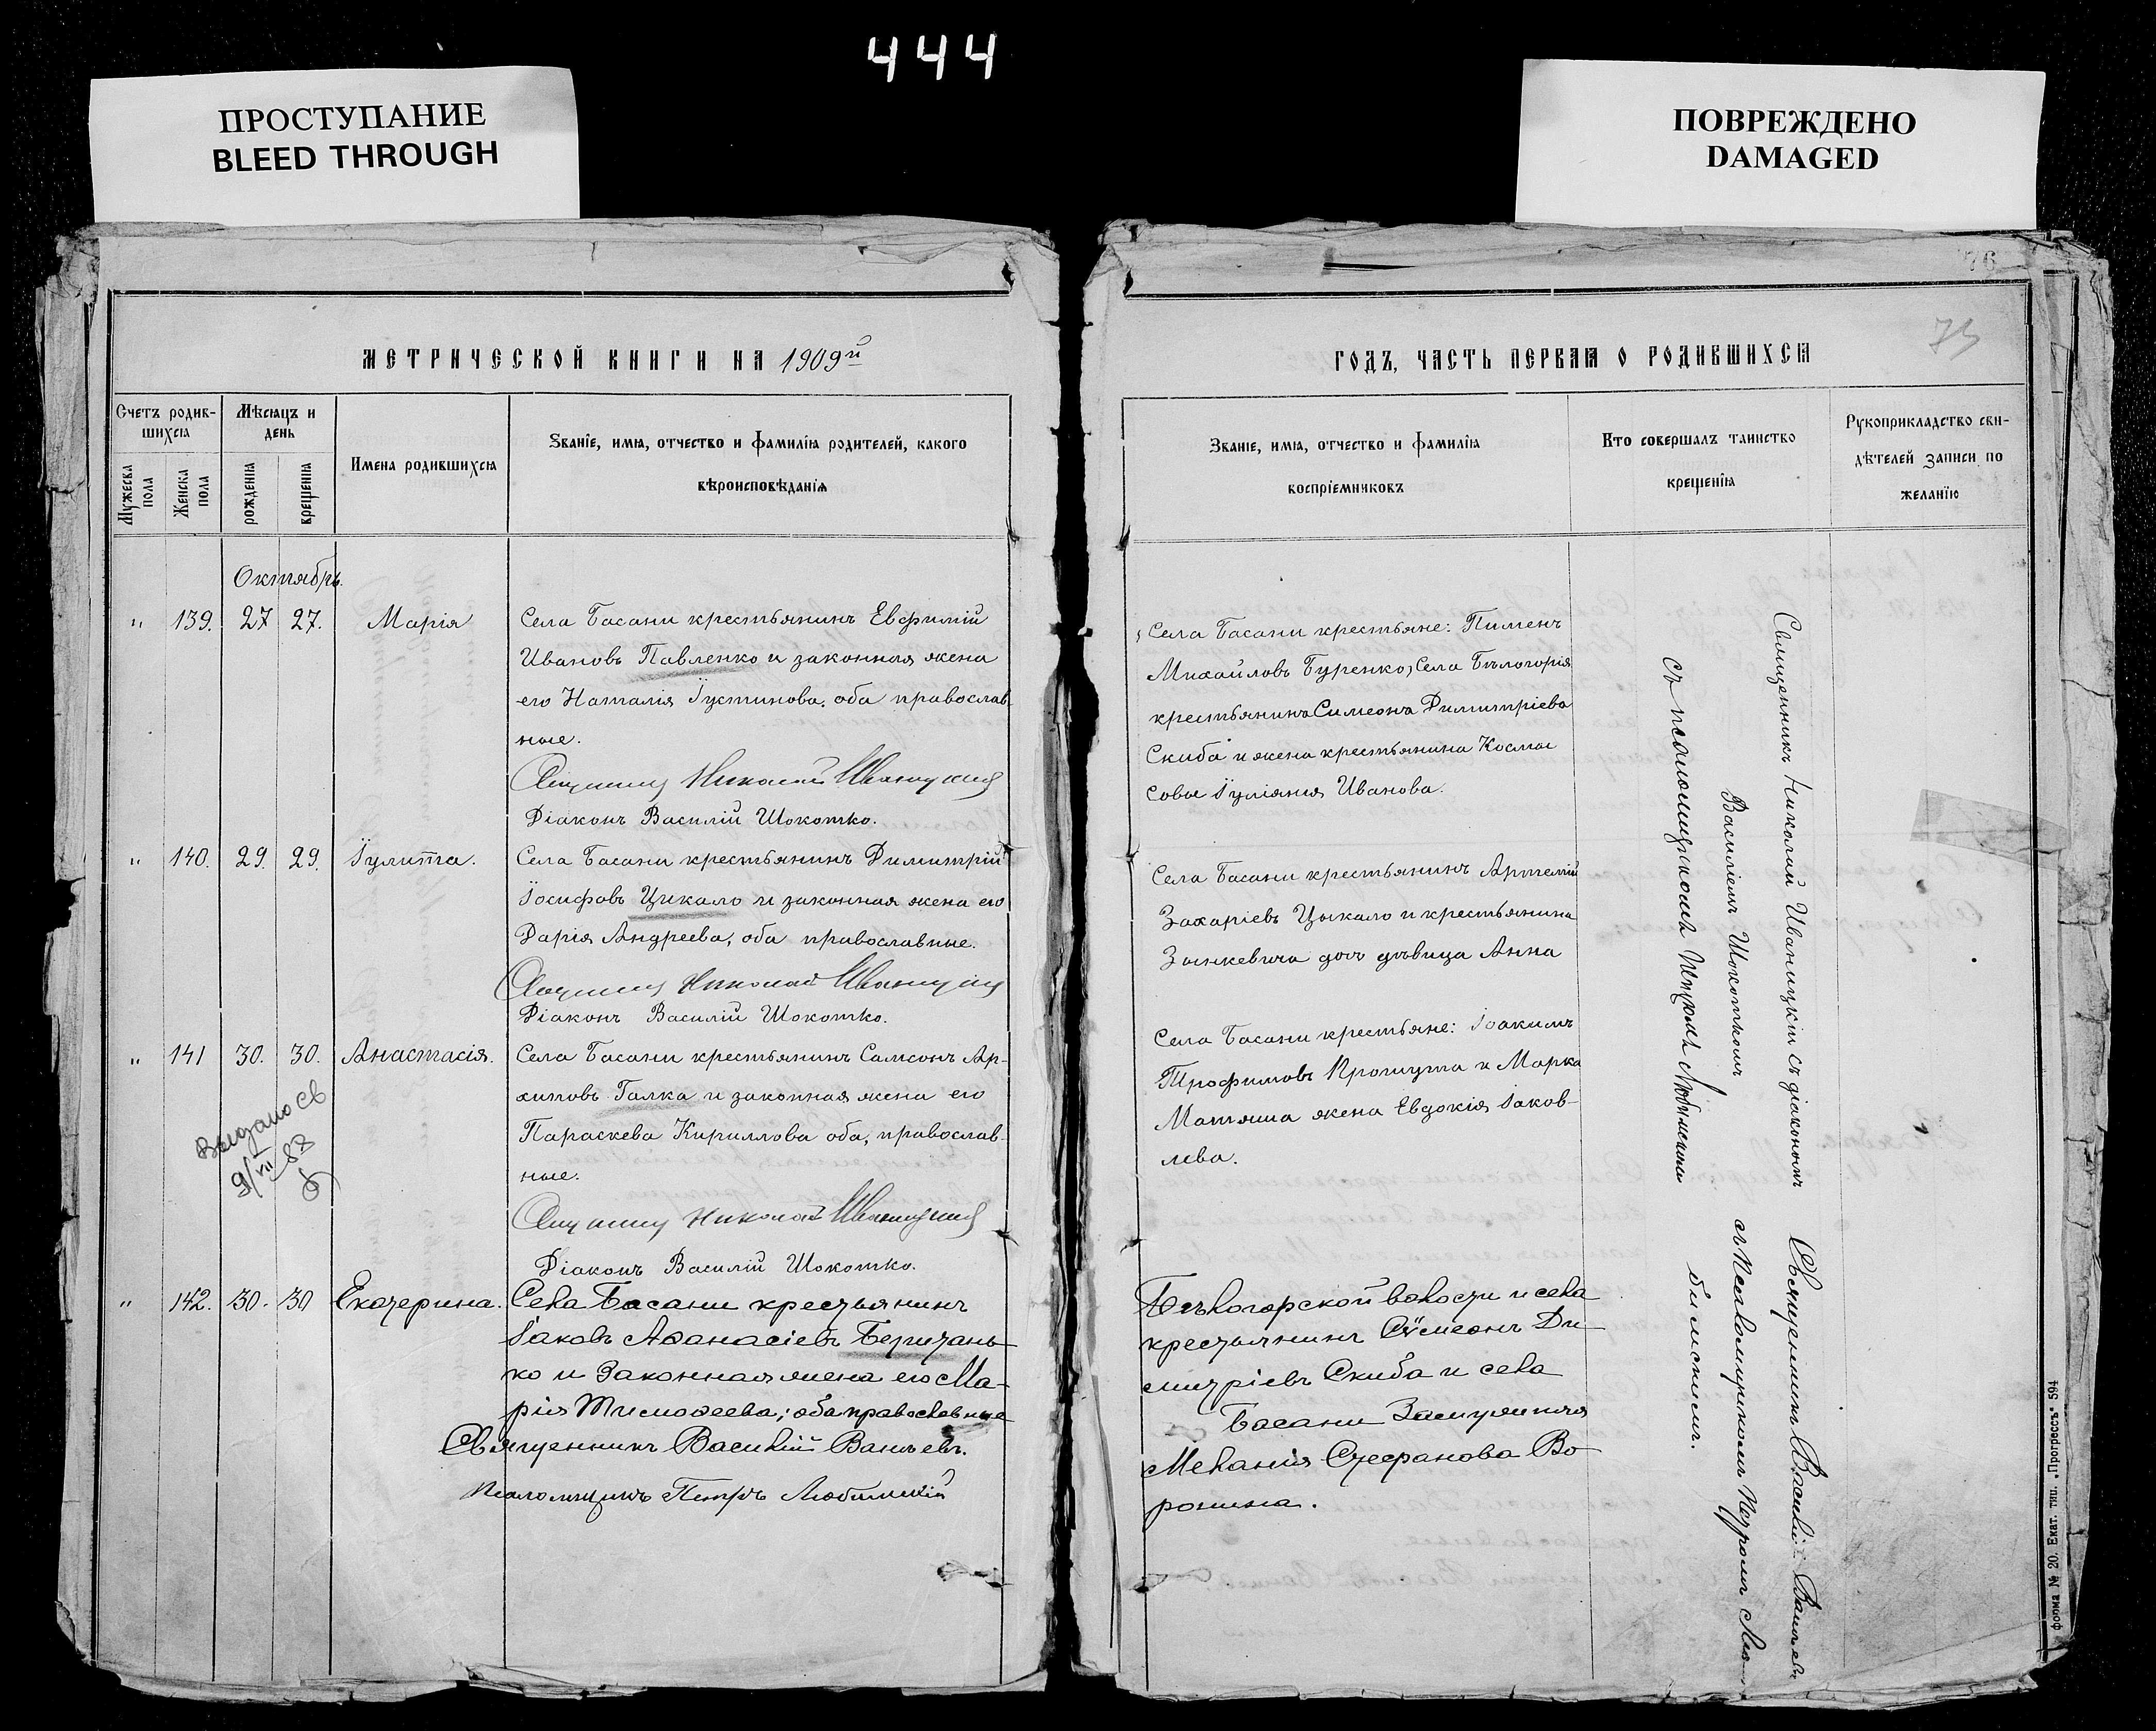 444
ПРОСТУПАНИЕ
BLEED THROUGH
ПОВРЕЖДЕНО
DAMAGED
МЕТРИЧЕСКОЙ КНИГИ НА 1909й
Счетъ родив-
шихся
Мужеска
пола
Женска
пола
Мѣсяцъ и
день
рожденія
крещенія
Имена родившихся
Званіе, имя, отчество и фамилія родителей, какого
вѣроисповѣданія
Октябрь.
" 139. 27 27. Марія
Села Басани крестьянинъ Евфимій
Ивановъ Павленко и законная жена
его Наталія Іустинова, оба православ
ные.
Николай Иваницкій
Діаконъ Василій Шокотко.
" 140. 29. 29. Іулитта.
Села Басани крестьянинъ Димитрій
Іосифовъ Цикало и законная жена его
Дарія Андреева, оба православные.
Николай Иваницкій
Діаконъ Василій Шокотко.
" 141 30. 30. Анастасія.
Села Басани крестьянинъ Самсонъ Ар-
хиповъ Галка и законная жена его
Параскева Кириллова оба, православ-
ные.
Николай Иваницкій
Діаконъ Василій Шокотко.
Выдано св
9/VII 87
" 142. 30. 30 Екатерина.
Села Басани крестьянинъ
Іаковъ Аѳанасіевъ
ко и Законная жена его Ма-
рія Тимоѳеева; оба православные
Священникъ Василій
Псаломщикъ Петръ Любимскій
76
75
ГОДЪ, ЧАСТЬ ПЕРВАЯ О РОДИВШИХСЯ
Званіе, имя, отчество и фамилія
воспріемниковъ
Кто совершалъ таинство
крещенія
Рукоприкладство сви-
дѣтелей записи по
желанію
Села Басани крестьяне: Пименъ
Михайловъ Буренко, Села Бѣлогорія
крестьянинъ Симеонъ Димитріевъ
Скиба и жена крестьянина Космы
Совы Іуліанія Иванова.
Села Басани крестьянинъ Артемій
Захаріевъ Цыкало и крестьянина
дочь дѣвица Анна
Села Басани крестьяне: Іоакимъ
Трофимовъ и Марка
Матяша жена Евдокія Іаков-
лева.
Бѣлогорской волости и села
крестьянинъ Сѵмеонъ Ди-
митріевъ Скиба и села
Басани
Меланія Стефанова Во
ронина.
Священникъ Николай Иваницкій съ діакономъ
Василіемъ Шокоткомъ
съ псаломщикомъ Петромъ Любимскимъ
Священникъ Василій
съ Псаломщикомъ Петромъ Лю-
бимскимъ.
форма № 20. Екат. тип. „Прогрессъ“ 594